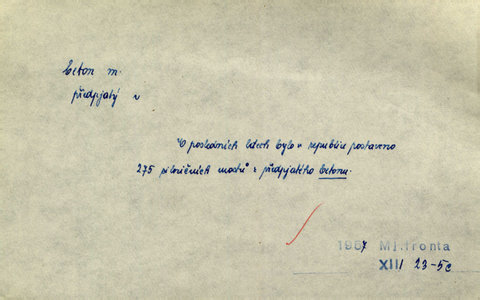 beton m.
předpjatý v
V posledních letech bylo v republice postaveno
275 silničních mostů z předpjatého betonu.
1967 Ml.fronta
XIII 23-5c